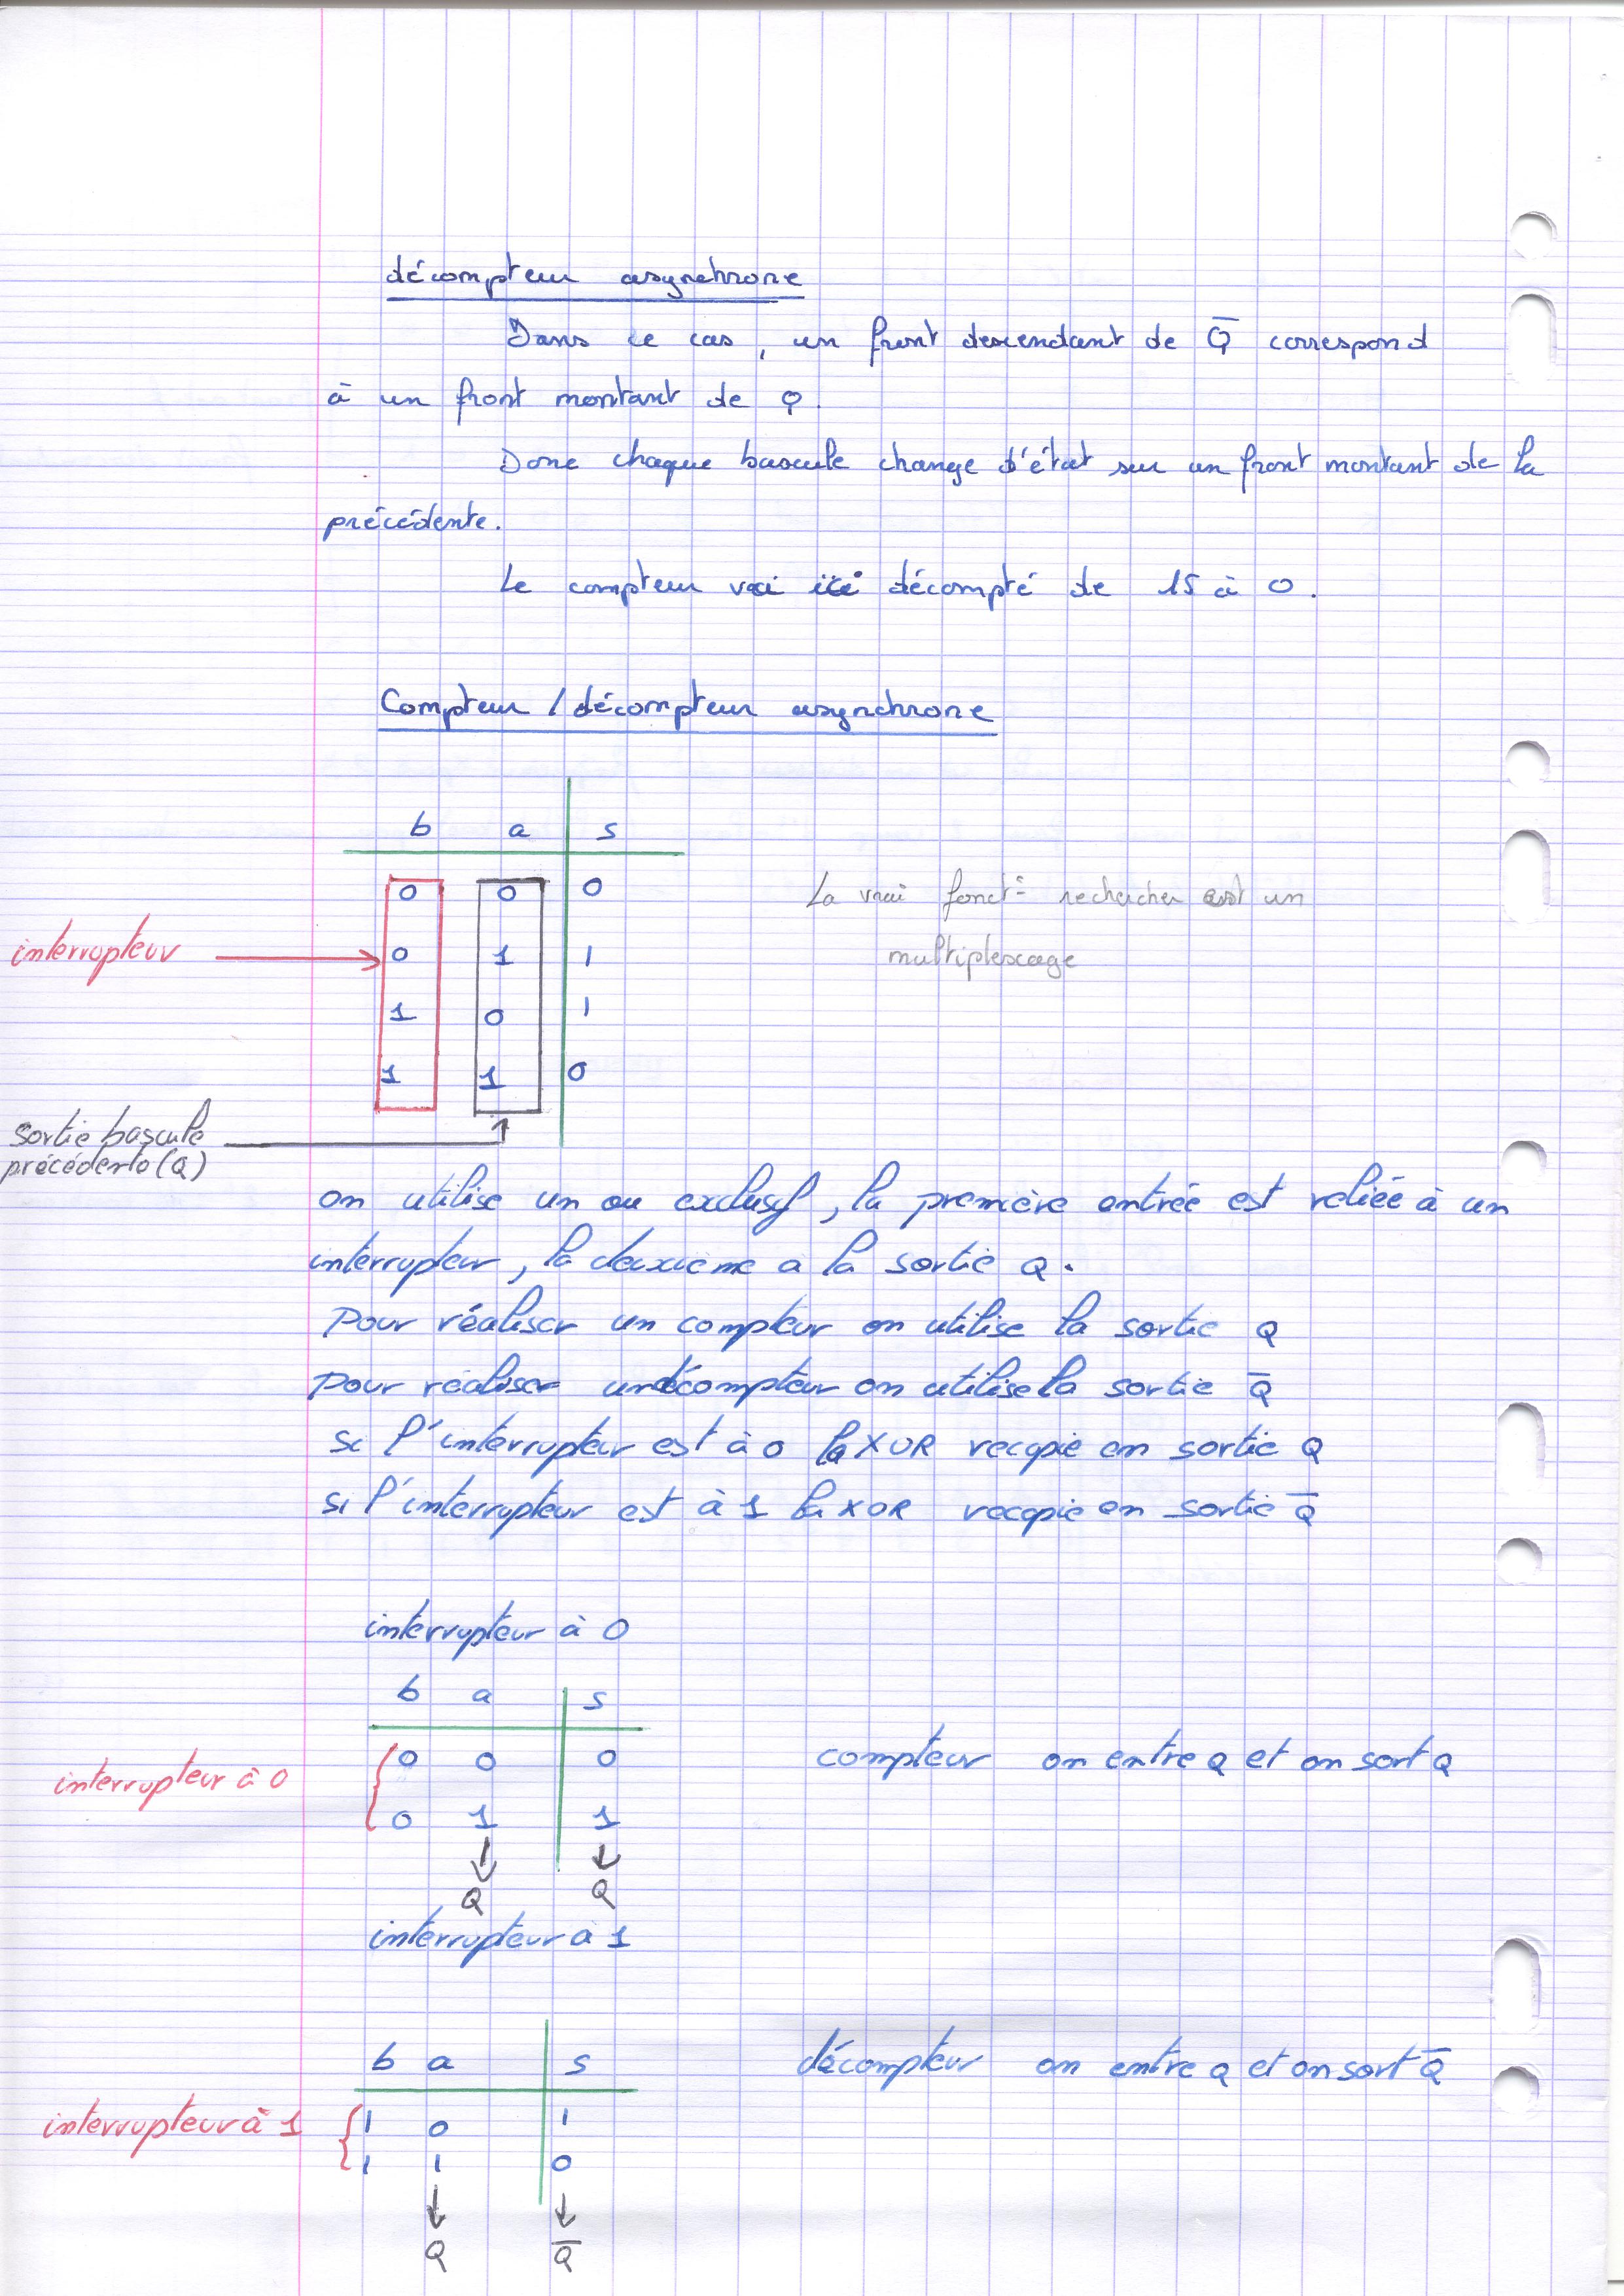 décompteur asynchrone
Dans ce cas, un front descendant de Q̅ correspond
à un front montant de Q.
Donc chaque bascule change d'état sur un front montant de la
précédente.
Le compteur vai ici décompté de 15 à 0.
Compteur / décompteur asynchrone
b a s
0 0 0
La vrai fonct° rechercher est un
interrupteur → 0 1 1
multiplexage
1 0 1
1 1 0
sortie bascule
précédente (Q)
on utilise un ou exclusif, la première entrée est reliée à un
interrupteur, la deuxième a la sortie Q.
Pour réaliser un compteur on utilise la sortie Q
Pour réaliser un décompteur on utilise la sortie Q̅
si l'interrupteur est à 0 la XOR recopie en sortie Q
si l'interrupteur est à 1 la XOR recopie en sortie Q̅
interrupteur à 0
b a s
0 0 0
compteur on entre Q et on sort Q
interrupteur à 0
0 1 1
↓ ↓
Q Q
interrupteur à 1
b a s
décompteur on entre Q et on sort Q̅
interrupteur à 1
1 0 1
1 1 0
↓ ↓
Q Q̅